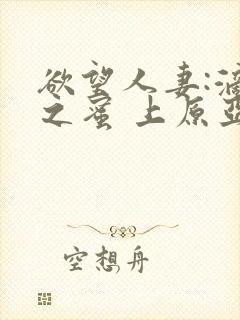 欲望人妻:滴
之蜜 上原亞
空想舟